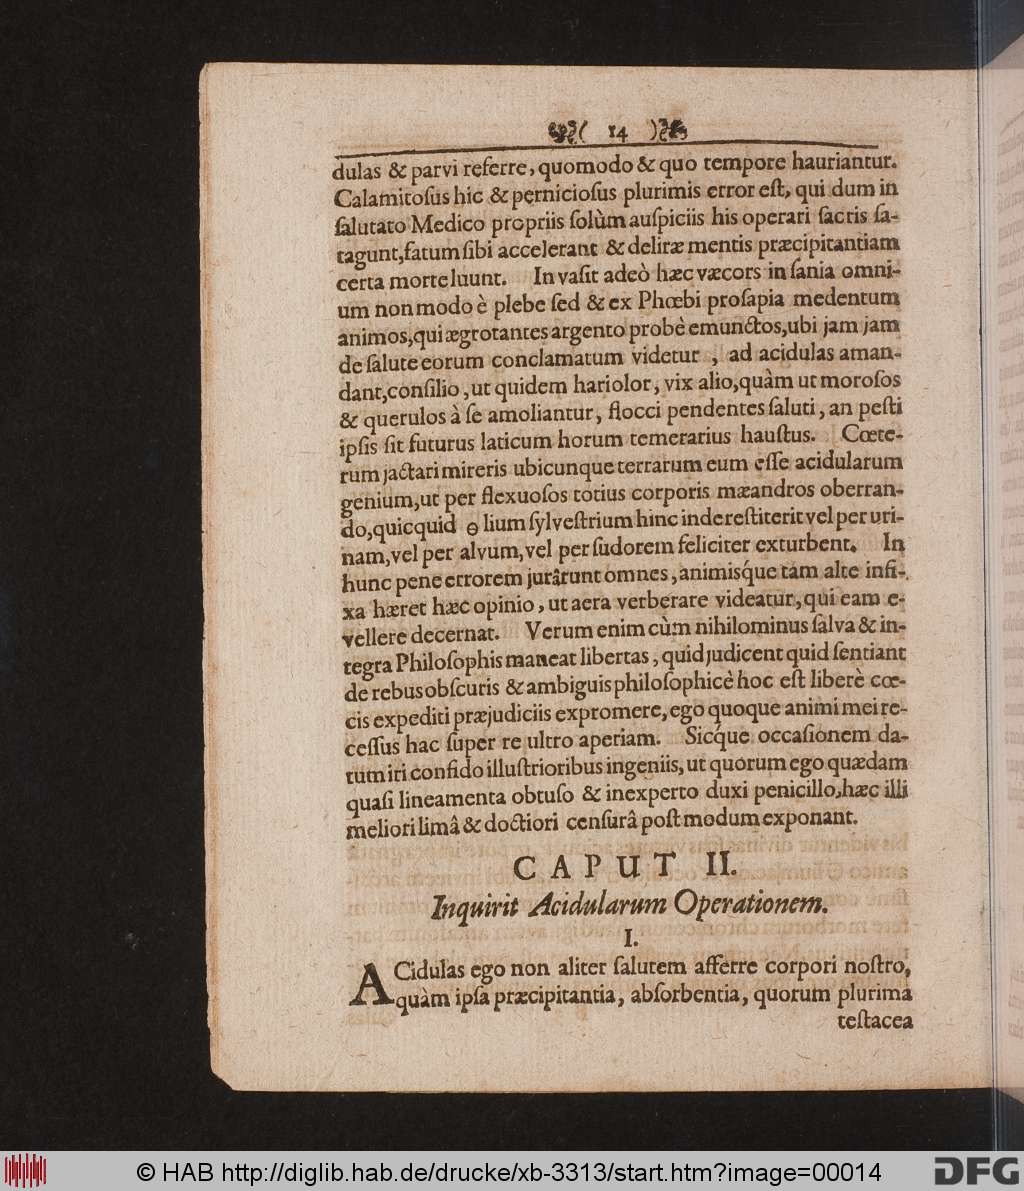 ( 14 )
dulas & parvi referre, quomodo & quo tempore hauriantur.
Calamitoſus hic & pernicioſus plurimis error eſt, qui dum in
ſalutato Medico propriis ſolùm auſpiciis his operari ſacris ſa-
tagunt, fatum ſibi accelerant & deliræ mentis præcipitantiam
certa morte luunt. In vaſit adeò hæc væcors in ſania omni-
um non modo è plebe ſed & ex Phœbi proſapia medentum
animos, qui ægrotantes argento probè emunctos, ubi jam jam
de ſalute eorum conclamatum videtur , ad acidulas aman-
dant, conſilio, ut quidem hariolor, vix alio, quàm ut moroſos
& querulos à ſe amoliantur, flocci pendentes ſaluti, an peſti
ipſis ſit futurus laticum horum temerarius hauſtus. Cœte-
rum jactari mireris ubicunque terrarum eum eſſe acidularum
genium, ut per flexuoſos totius corporis mæandros oberran-
do, quicquid ⊖ lium ſylveſtrium hinc inde reſtiterit vel per uri-
nam, vel per alvum, vel per ſudorem feliciter exturbent. In
hunc pene errorem jurârunt omnes, animisq́ue tam alte infi-
xa hæret hæc opinio, ut aera verberare videatur, qui eam e-
vellere decernat. Verum enim cùm nihilominus ſalva & in-
tegra Philoſophis maneat libertas, quid judicent quid ſentiant
de rebus obſcuris & ambiguis philoſophicè hoc eſt liberè cœ-
cis expediti præjudiciis expromere, ego quoque animi mei re-
ceſſus hac ſuper re ultro aperiam. Sicq́ue occaſionem da-
tum iri confido illuſtrioribus ingeniis, ut quorum ego quædam
quaſi lineamenta obtuſo & inexperto duxi penicillo, hæc illi
meliori limâ & doctiori cenſurâ poſtmodum exponant.
CAPUT II.
Inquirit Acidularum Operationem.
I.
ACidulas ego non aliter ſalutem afferre corpori noſtro,
quàm ipſa præcipitantia, abſorbentia, quorum plurima
teſtacea
© HAB http://diglib.hab.de/drucke/xb-3313/start.htm?image=00014
DFG